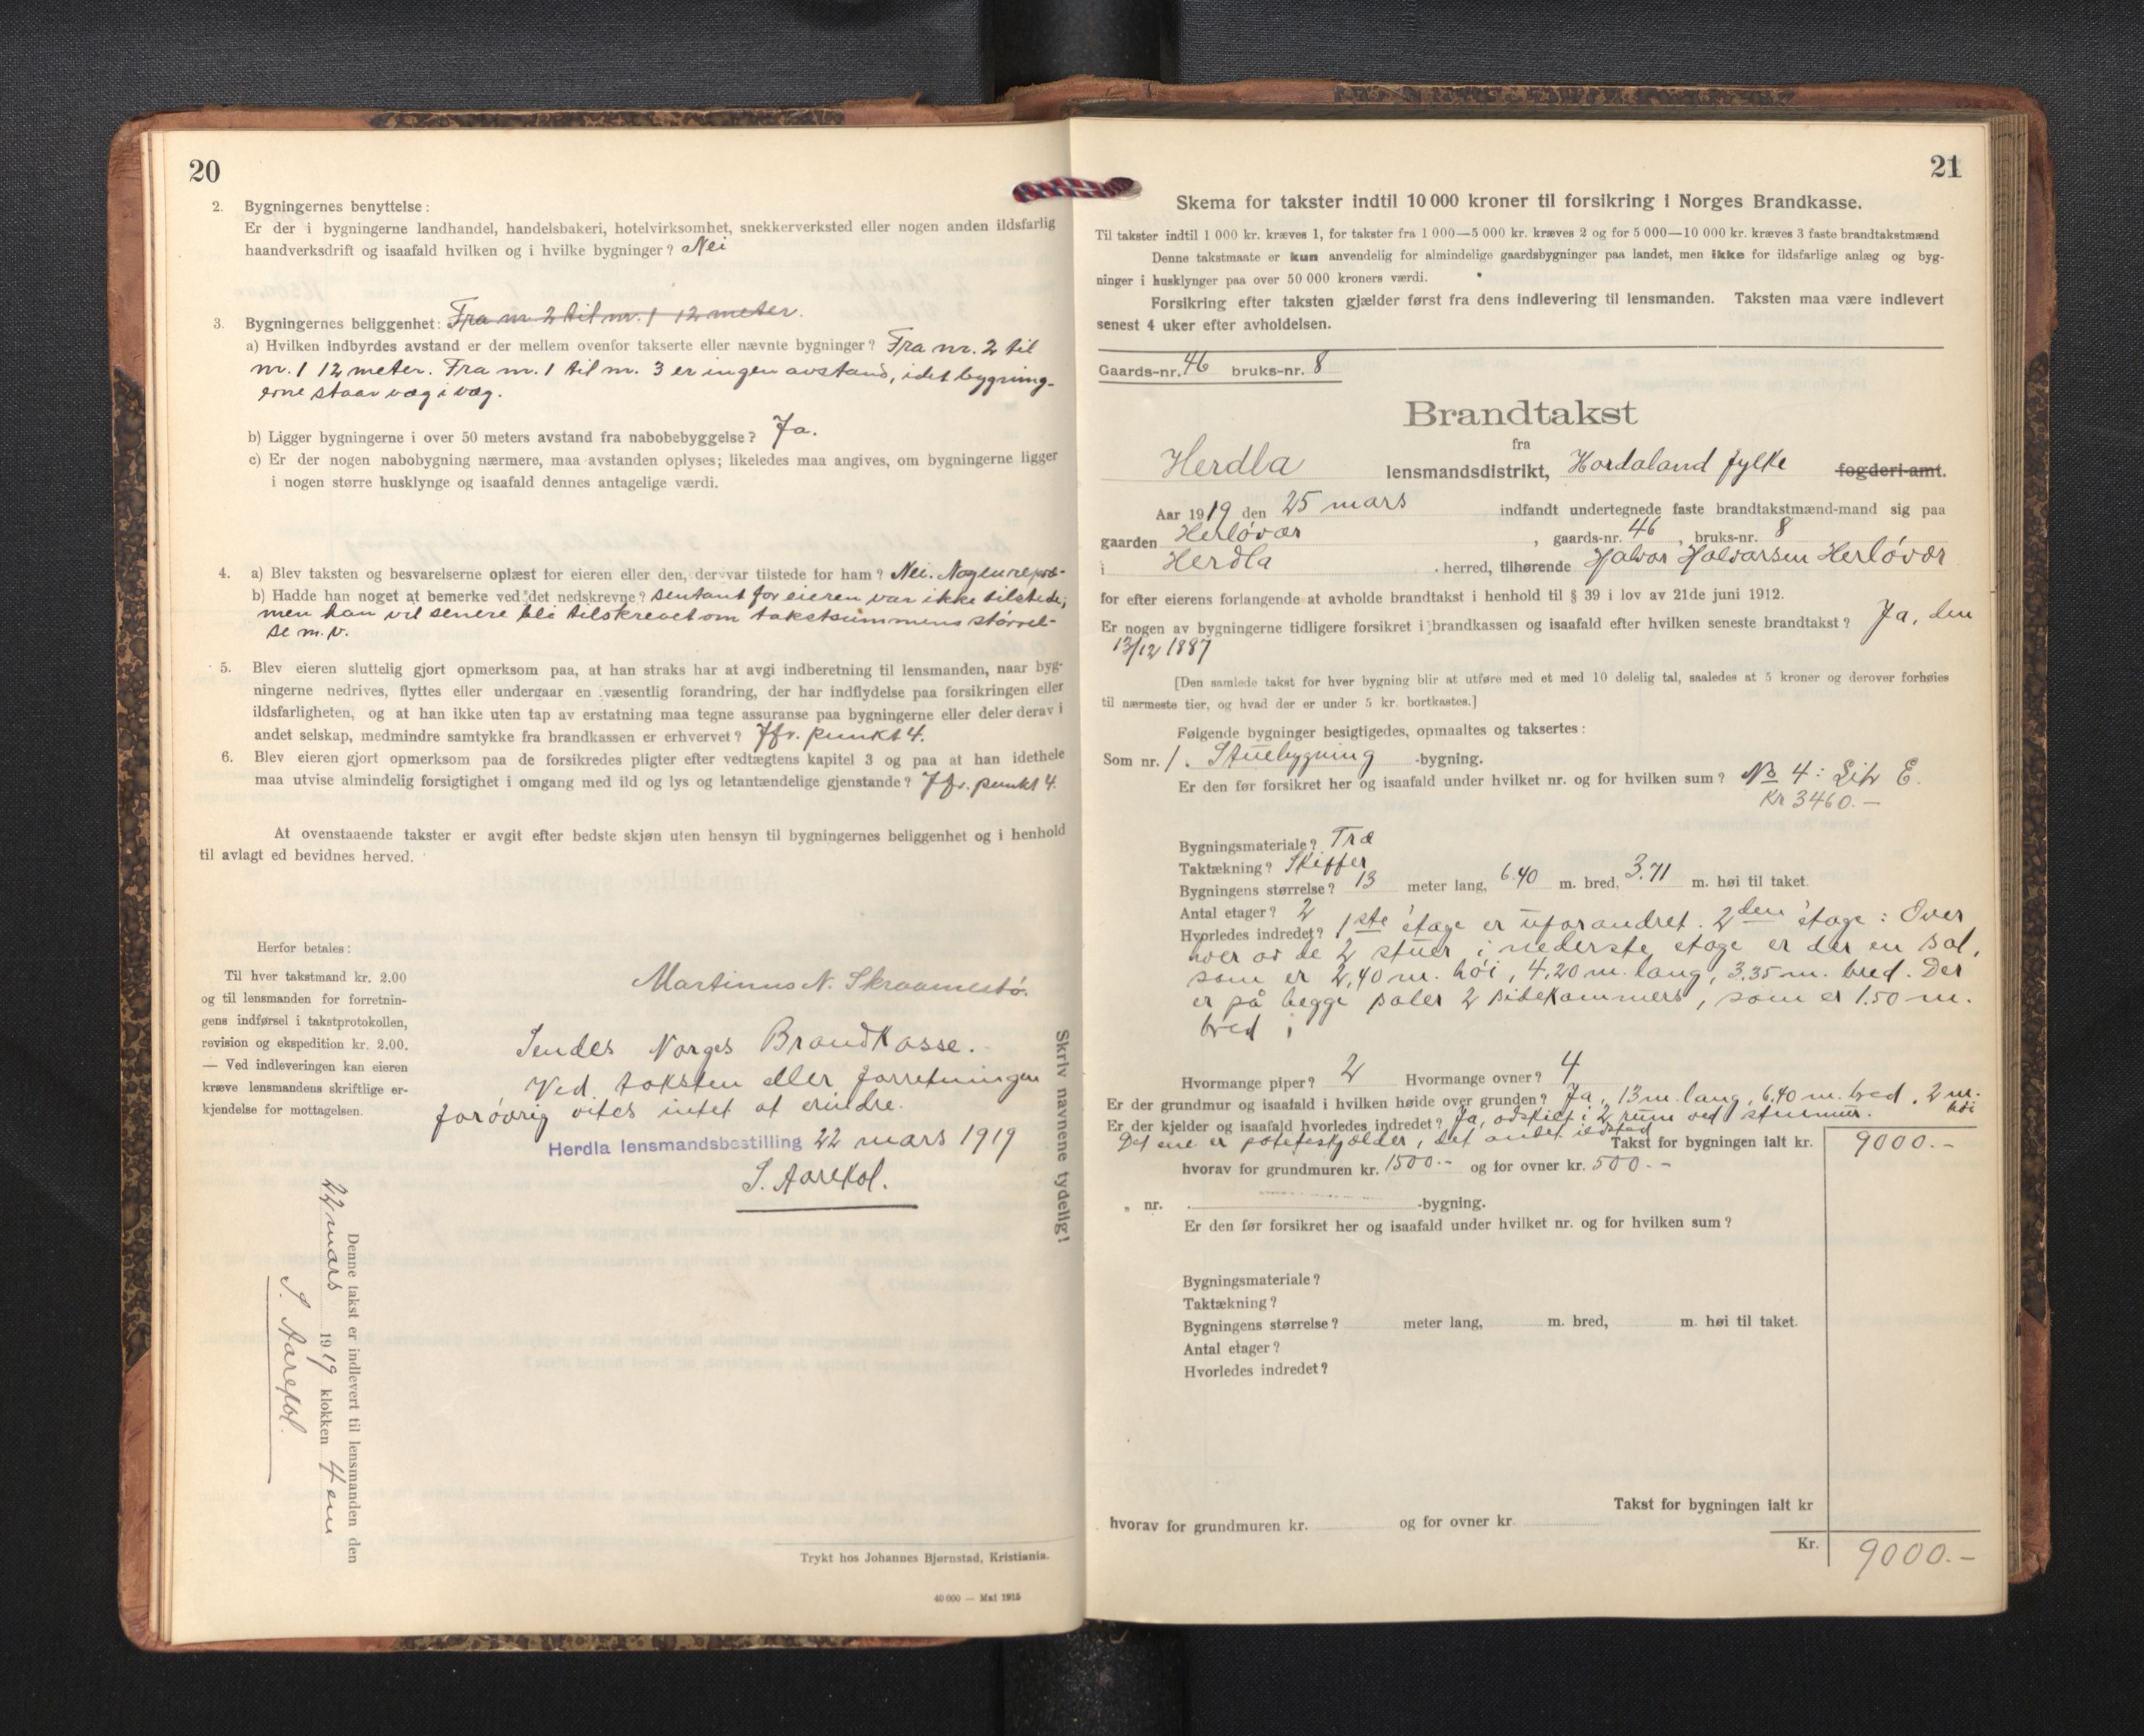 20
2. Bygningernes benyttelse:
Er der i bygningerne landhandel, handelsbakeri, hotelvirksomhet, snekkerverksted eller nogen anden ildsfarlig
haandverksdrift og isaafald hvilken og i hvilke bygninger? Nei
3. Bygningernes beliggenhet: Fra nr. 2 til nr. 1 12 meter.
a) Hvilken indbyrdes avstand er der mellem ovenfor takserte eller nævnte bygninger? Fra nr. 2 til
nr. 1 12 meter. Fra nr. 1 til nr. 3 er ingen avstand, idet bygning-
erne staar væg i væg.
b) Ligger bygningerne i over 50 meters avstand fra nabobebyggelse? Ja.
c) Er der nogen nabobygning nærmere, maa avstanden oplyses; likeledes maa angives, om bygningerne ligger
i nogen større husklynge og isaafald dennes antagelige værdi.
4. a) Blev taksten og besvarelserne oplæst for eieren eller den, der var tilstede for ham? Nei. Nogen repræ-
b) Hadde han noget at bemerke ved det nedskrevne? sentant for eieren var ikke tilstede,
men han vil senere bli tilskrevet om takstsummens størrel-
se m. v.
5. Blev eieren sluttelig gjort opmerksom paa, at han straks har at avgi indberetning til lensmanden, naar byg-
ningerne nedrives, flyttes eller undergaar en væsentlig forandring, der har indflydelse paa forsikringen eller
ildsfarligheten, og at han ikke uten tap av erstatning maa tegne assuranse paa bygningerne eller deler derav i
andet selskap, medmindre samtykke fra brandkassen er erhvervet? Jfr. punkt 4.
6. Blev eieren gjort opmerksom paa de forsikredes pligter efter vedtægtens kapitel 3 og paa at han idethele
maa utvise almindelig forsigtighet i omgang med ild og lys og letantændelige gjenstande? Jfr. punkt 4.
At ovenstaaende takster er avgit efter bedste skjøn uten hensyn til bygningernes beliggenhet og i henhold
til avlagt ed bevidnes herved.
Herfor betales:
Til hver takstmand kr. 2.00
og til lensmanden for forretnin-
gens indførsel i takstprotokollen,
revision og ekspedition kr. 2.00.
— Ved indleveringen kan eieren
kræve lensmandens skriftlige er-
kjendelse for mottagelsen.
Martinus N. Skraamestø.
Sendes Norges Brandkasse.
Ved taksten eller forretningen
forøvrig vites intet at erindre.
Herdla lensmandsbestilling 22 mars 1919
S. Aarekol.
Skriv navnene tydelig!
Denne takst er indlevert til lensmanden den
22 mars 1919 klokken 4 em
S. Aarekol.
Trykt hos Johannes Bjørnstad, Kristiania.
40 000 — Mai 1915
21
Skema for takster indtil 10 000 kroner til forsikring i Norges Brandkasse.
Til takster indtil 1 000 kr. kræves 1, for takster fra 1 000—5 000 kr. kræves 2 og for 5 000—10 000 kr. kræves 3 faste brandtakstmænd
Denne takstmaate er kun anvendelig for almindelige gaardsbygninger paa landet, men ikke for ildsfarlige anlæg og byg-
ninger i husklynger paa over 50 000 kroners værdi.
Forsikring efter taksten gjælder først fra dens indlevering til lensmanden. Taksten maa være indlevert
senest 4 uker efter avholdelsen.
Gaards-nr. 46 bruks-nr. 8
Brandtakst
fra
Herdla lensmandsdistrikt, Hordaland fylke fogderi-amt.
Aar 1919 den 25 mars indfandt undertegnede faste brandtakstmænd-mand sig paa
gaarden Herløvær, gaards-nr. 46, bruks-nr. 8
i Herdla herred, tilhørende Halvor Halvorsen Herløvær
for efter eierens forlangende at avholde brandtakst i henhold til § 39 i lov av 21de juni 1912.
Er nogen av bygningerne tidligere forsikret i brandkassen og isaafald efter hvilken seneste brandtakst? Ja, den
13/12 1887
[Den samlede takst for hver bygning blir at utføre med et med 10 delelig tal, saaledes at 5 kroner og derover forhøies
til nærmeste tier, og hvad der er under 5 kr. bortkastes.]
Følgende bygninger besigtigedes, opmaaltes og taksertes:
Som nr. 1. Stuebygning -bygning.
Er den før forsikret her og isaafald under hvilket nr. og for hvilken sum? No 4: Litr E.
Kr 3460.—
Bygningsmateriale? Træ
Taktækning? Skiffer
Bygningens størrelse? 13 meter lang, 6.40 m. bred, 3.71 m. høi til taket.
Antal etager? 2
Hvorledes indredet? 1ste etage er uforandret. 2den etage: Over
hver av de 2 stuer i nederste etage er der en sal,
som er 2,40 m. høi, 4,20 m. lang, 3.35 m. bred. Der
er på begge saler 2 sidekammers, som er 1.50 m.
bred i
Hvormange piper? 2 Hvormange ovner? 4
Er der grundmur og isaafald i hvilken høide over grunden? Ja, 13 m. lang, 6.40 m. bred, 2 m.
høi
Er der kjelder og isaafald hvorledes indredet? Ja, adskilt i 2 rum ved stenmur.
Det ene er poteteskjælder, det andet ildsted
Takst for bygningen ialt kr. 9000.—
hvorav for grundmuren kr. 1500.— og for ovner kr. 500.—
„ nr. -bygning.
Er den før forsikret her og isaafald under hvilket nr. og for hvilken sum?
Bygningsmateriale?
Taktækning?
Bygningens størrelse? meter lang, m. bred, m. høi til taket.
Antal etager?
Hvorledes indredet?
Takst for bygningen ialt kr
hvorav for grundmuren kr. og for ovner kr
Kr. 9000.—